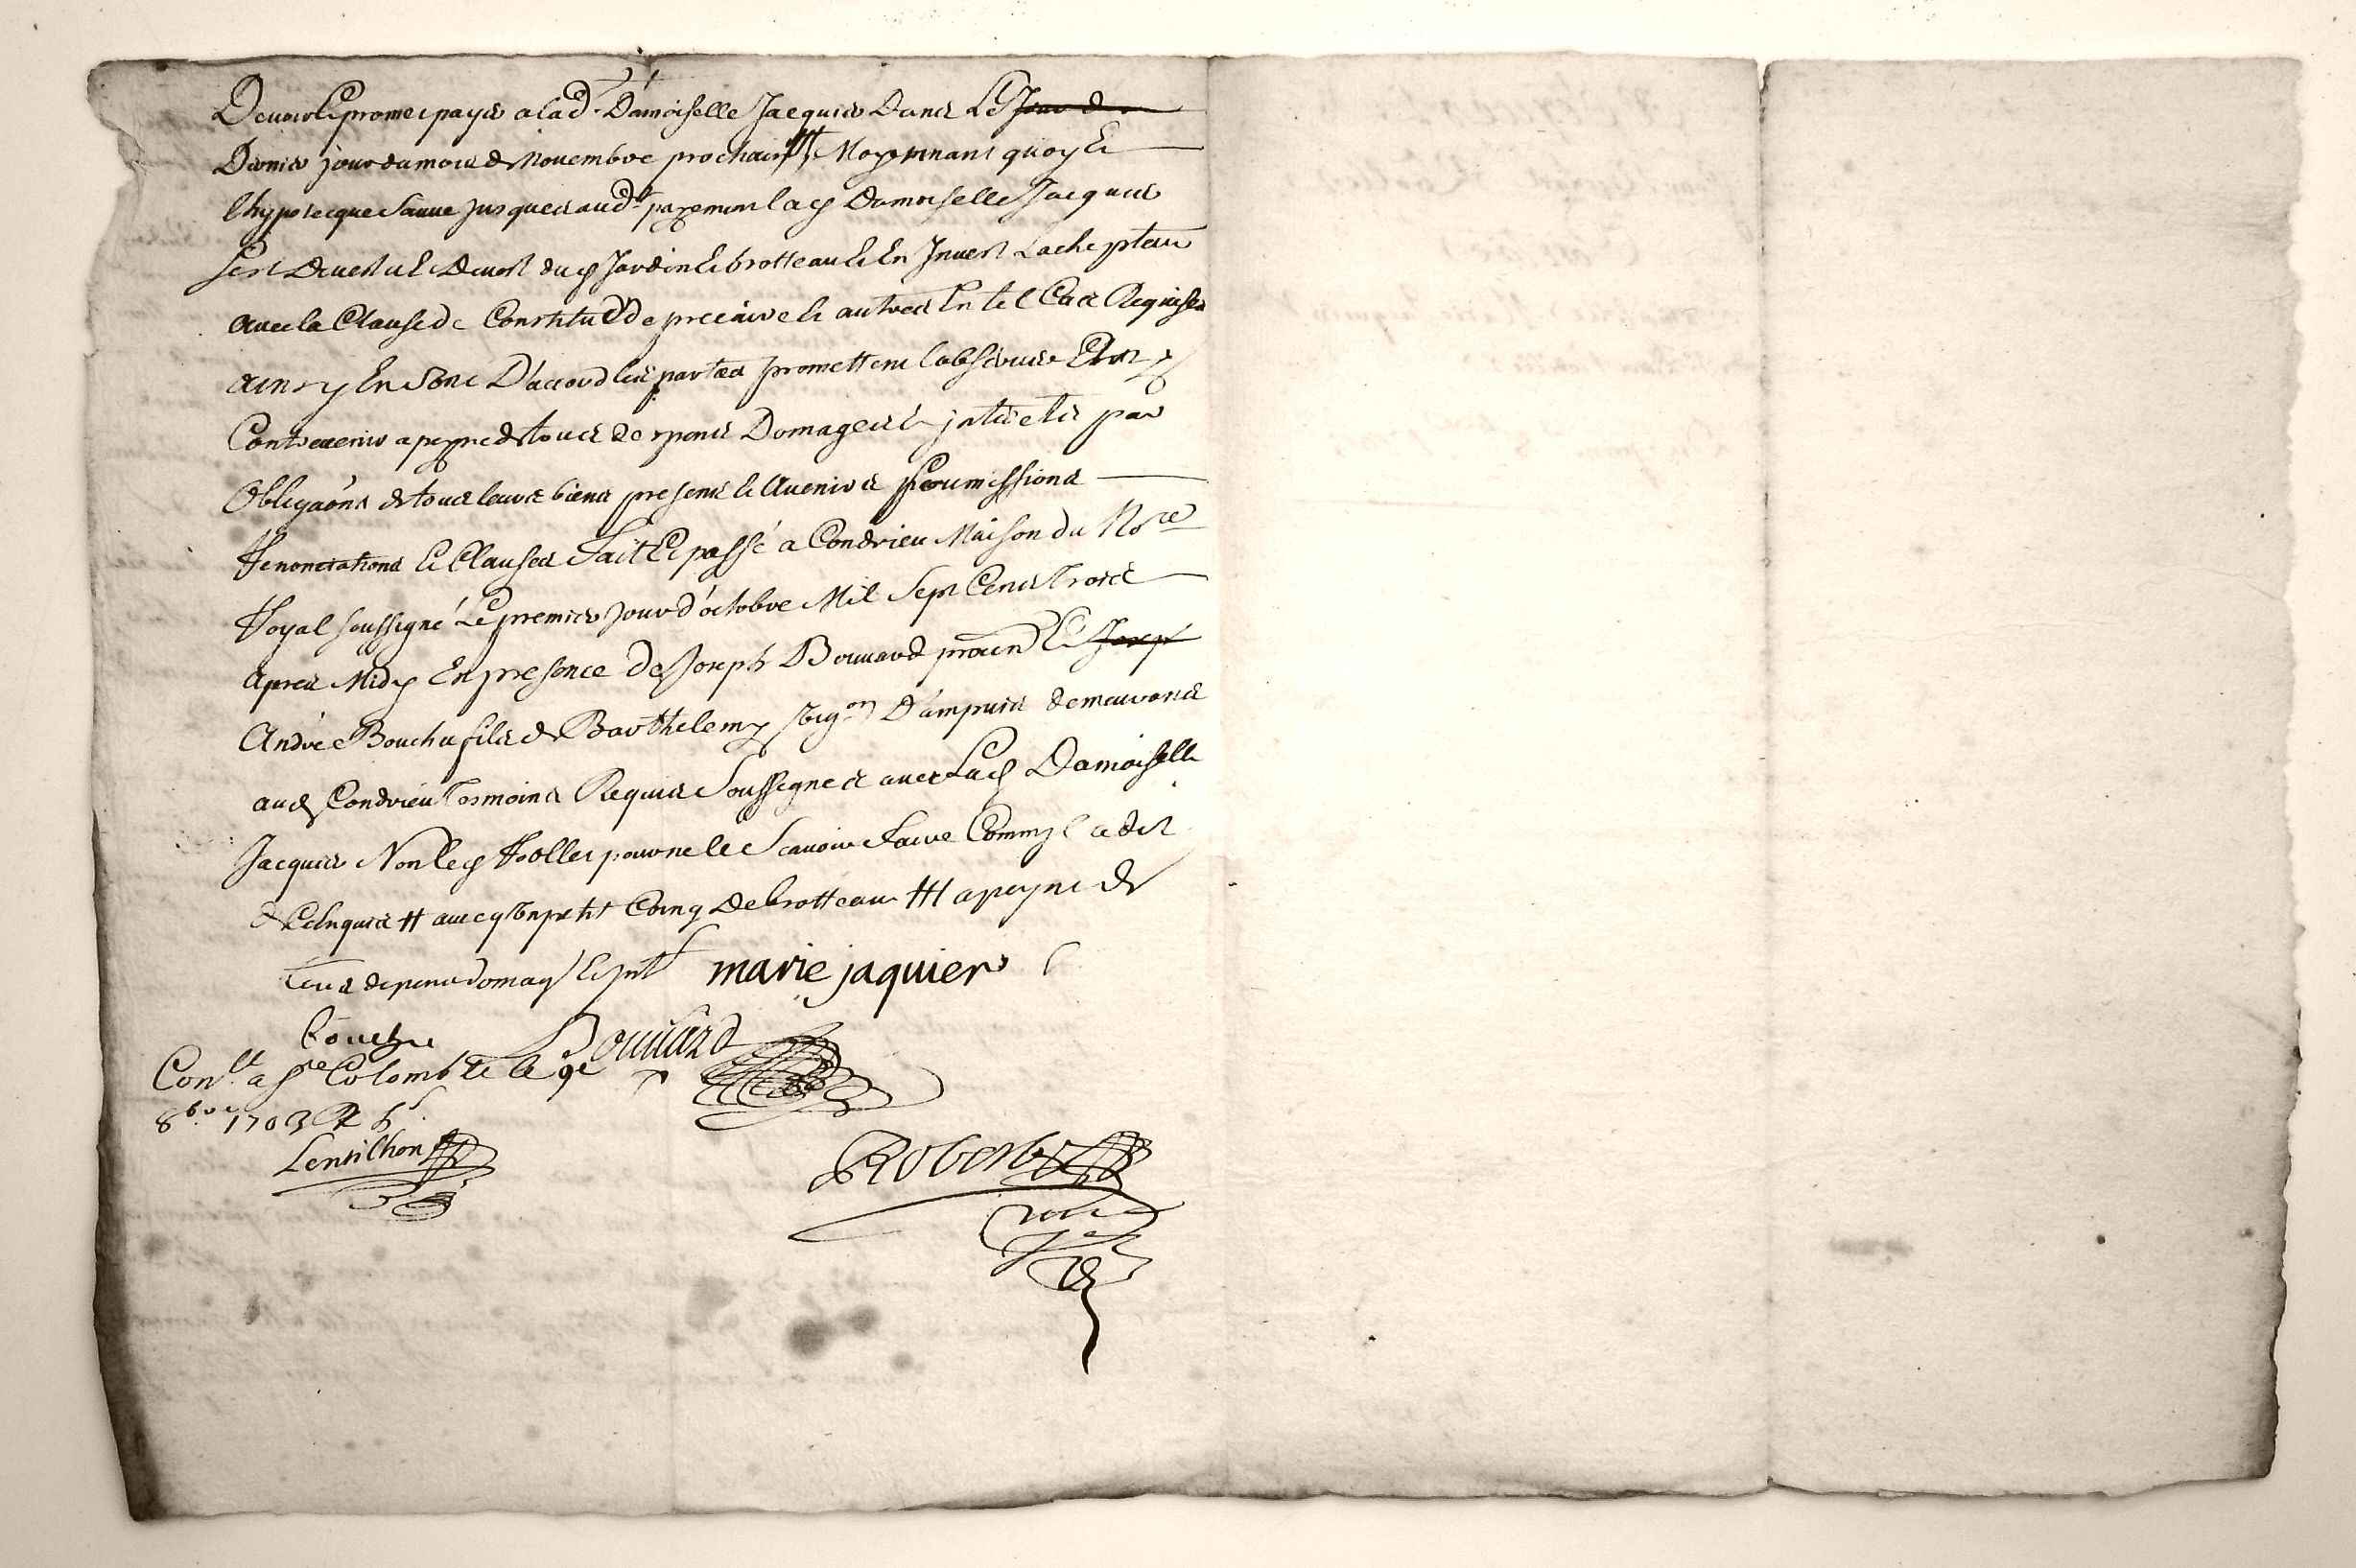 Devoir Et promet payer a lad.t Damoiselle Jacquier Dans Le Jour de
Dernier jour du mois de Novembre prochain ttt Moyennant quoy Et
lhypotecque Sauve Jusques aud.t payement lad Damoiselle Jacquier
sest Devestue Devest dud Jardin Et brotteau Et En Invest Lachepteur
avec la Clause de Constitut de precaire et autres En tel Cas Requises
ainsy En sont D'accord les parties promettent lobserver
Contrevenir a peyne de tous despens Domages et jnterets par
Obligaôns de tous leurs biens presents et Avenirs soumissions
Renonciations Et Clauses Fait Et passé a Condrieu Maison du No.re
Royal soussigné Le premier Jour d'octobre Mil Sept Cents Trois
apres Midy En presence de Joseph Bouvard Et Josep
André Bouchu fils de Barthelemy vig.on D'ampuis demeurants
aud Condrieu Tesmoins Requis Soussignes avec Lad Damoiselle
Jacquier Non led Rollet pour ne le Scavoir Faire Comm jl a dit
de Ce Enquis tt avecq Un petit Coing De brotteau ttt a peyne de
tous depens domag Et jnt
marie jaquier
Bouchu Bouvard
Con.lt a S.te Colombe le 9e
8.bre 1703 R 6 s.
Lentilhon
Robert
no.re
R.al